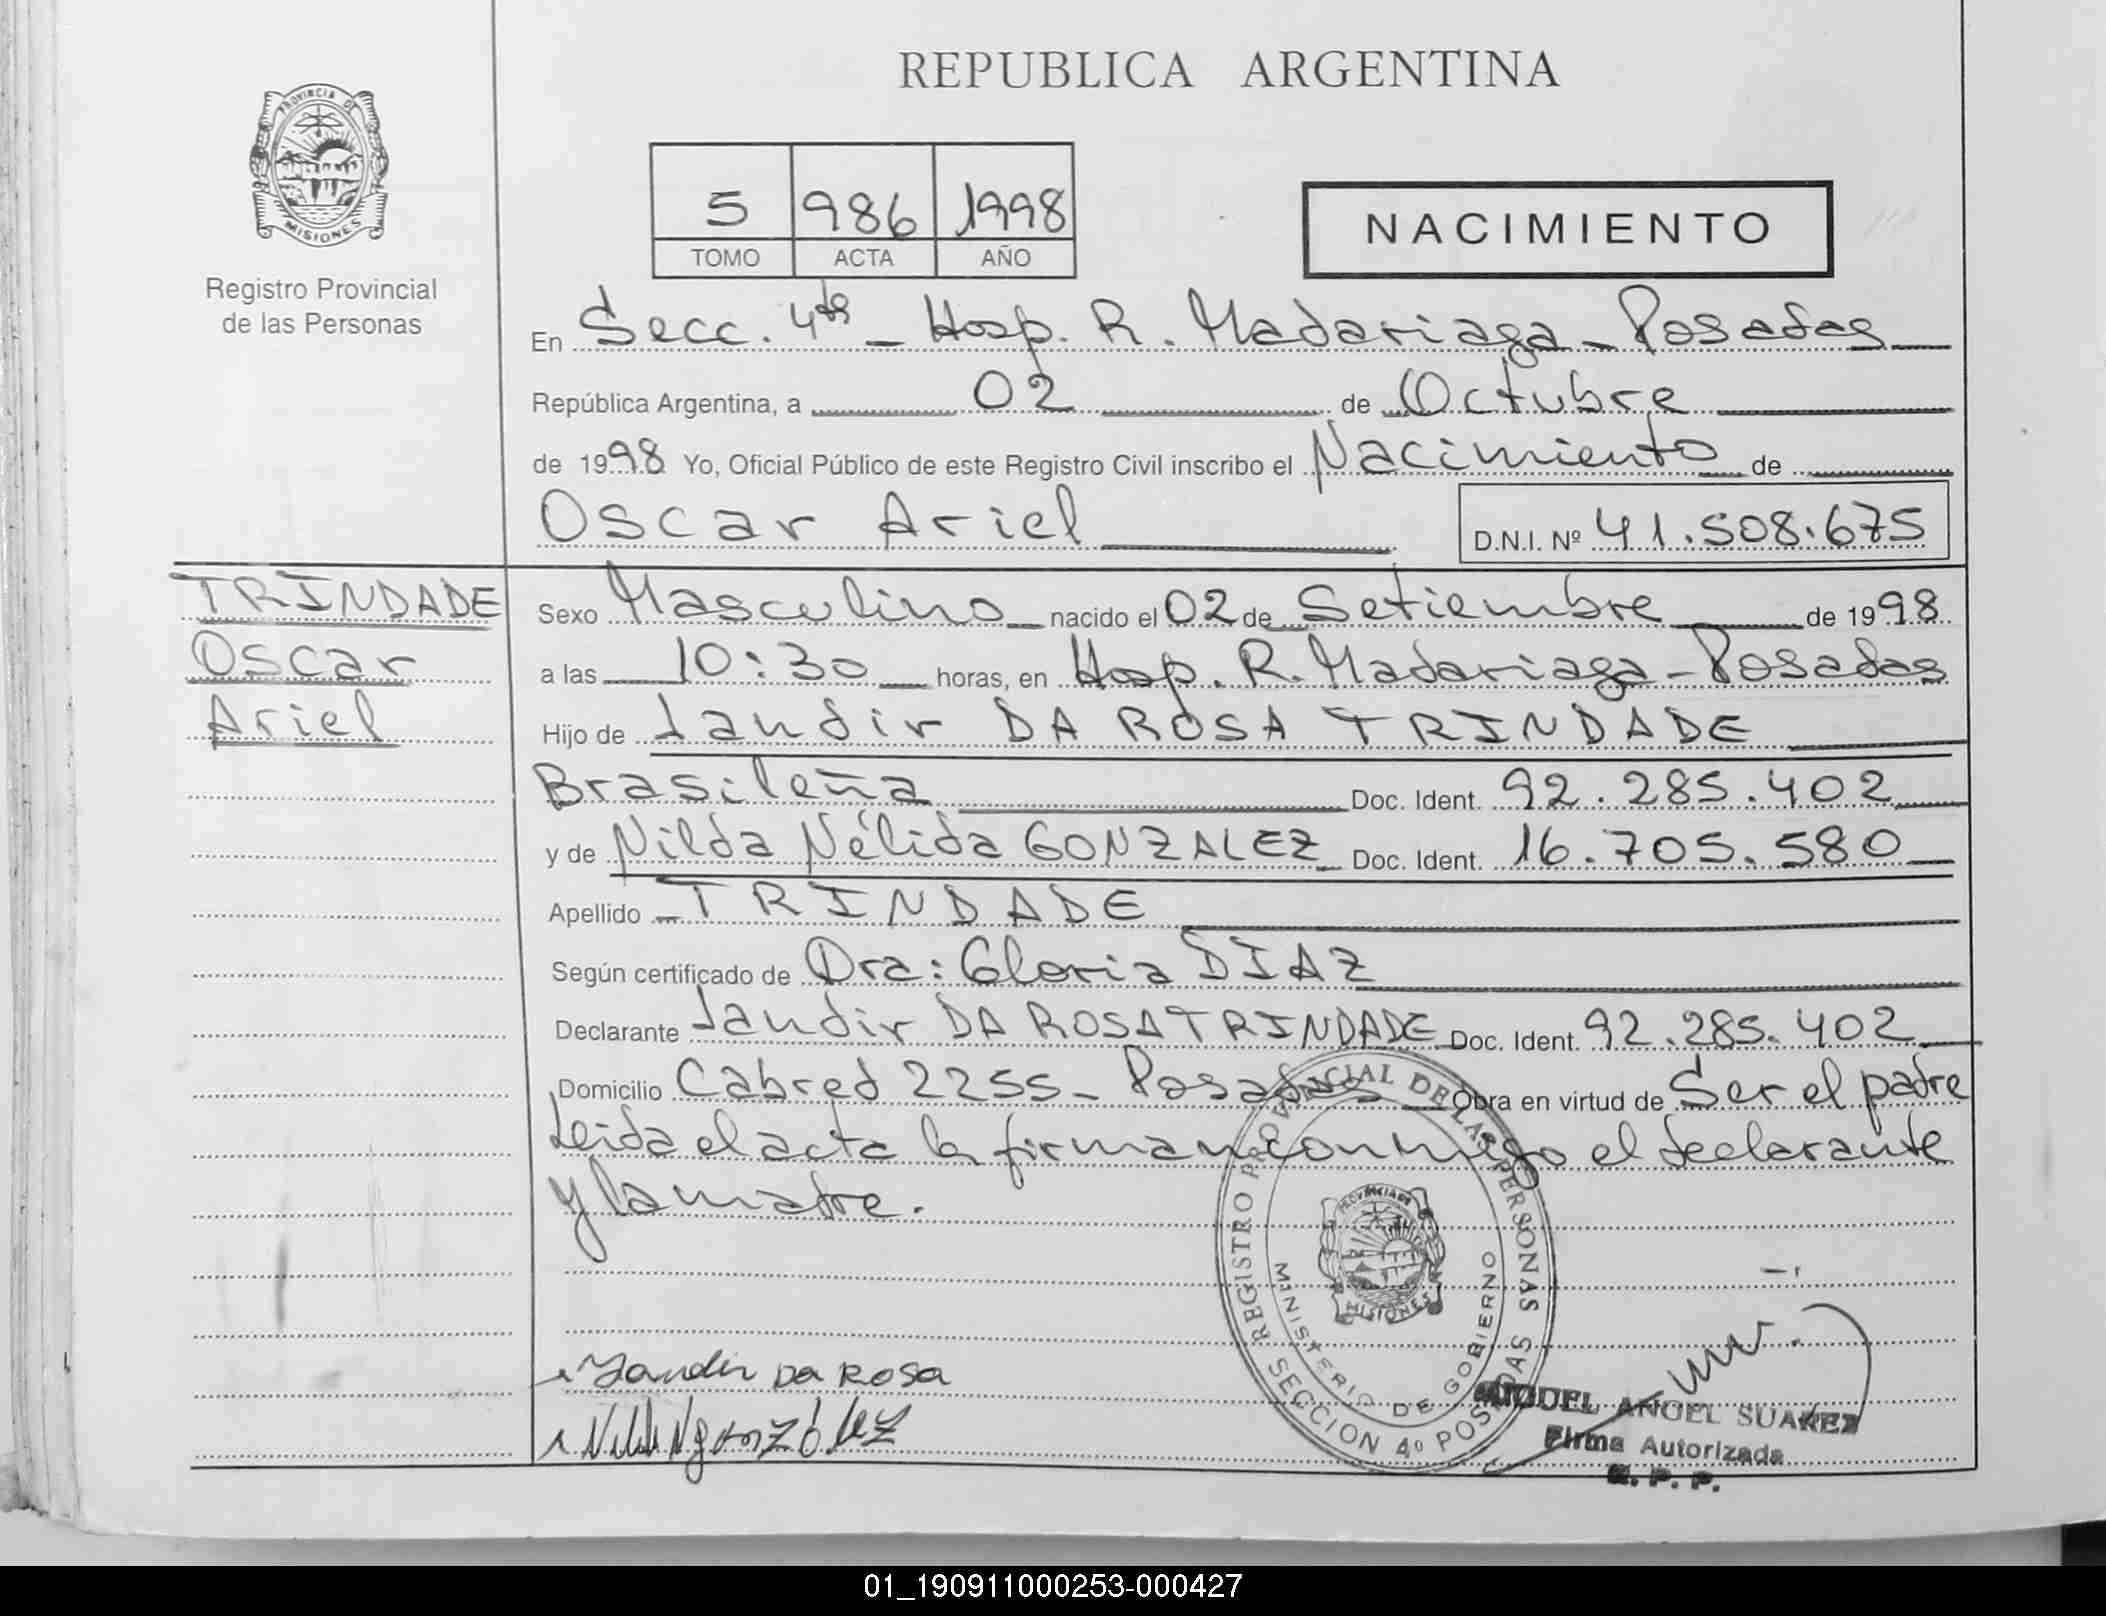 REPUBLICA ARGENTINA
PROVINCIA DE
MISIONES
Registro Provincial
de las Personas
5 986 1998
TOMO ACTA AÑO
NACIMIENTO
En Secc. 4ta - Hosp. R. Madariaga - Posadas
República Argentina, a 02 de Octubre
de 1998 Yo, Oficial Público de este Registro Civil inscribo el Nacimiento de
Oscar Ariel D.N.I. Nº 41.508.675
TRINDADE
Oscar
Ariel
Sexo Masculino nacido el 02 de Setiembre de 1998
a las 10:30 horas, en Hosp. R. Madariaga - Posadas
Hijo de Jandir DA ROSA TRINDADE
Brasileña Doc. Ident. 92.285.402
y de Nilda Nélida GONZALEZ Doc. Ident. 16.705.580
Apellido TRINDADE
Según certificado de Dra: Gloria DIAZ
Declarante Jandir DA ROSA TRINDADE Doc. Ident. 92.285.402
Domicilio Cabred 2255 - Posadas Obra en virtud de Ser el padre
Leida el acta la firman conmigo el declarante
y la madre.
REGISTRO PROVINCIAL DE LAS PERSONAS
MINISTERIO DE GOBIERNO
SECCION 4º POSADAS
PROVINCIA DE
MISIONES
Jandir DA ROSA
MIGUEL ANGEL SUAREZ
Firma Autorizada
R. P. P.
01_190911000253-000427